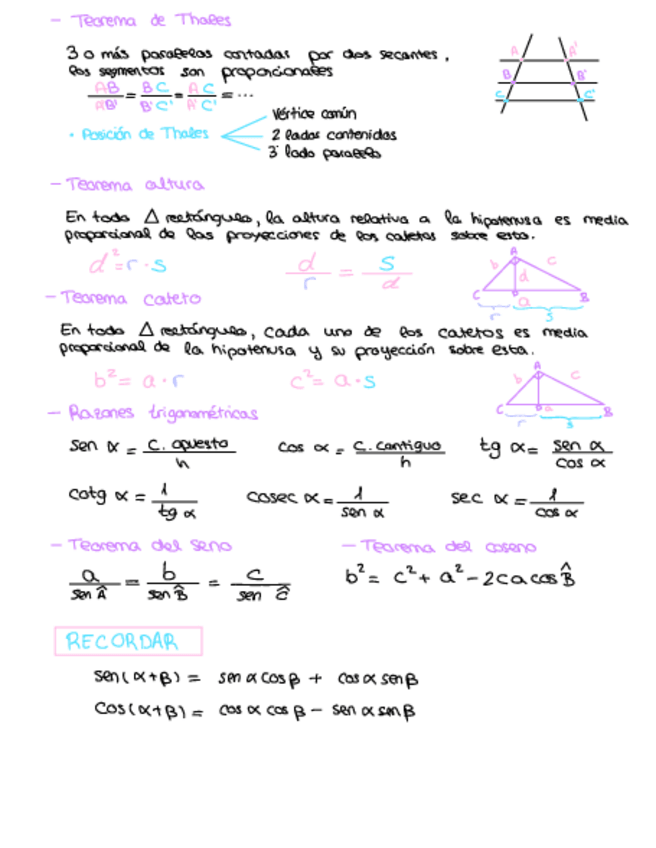 - Teorema de Thales
3 o más paralelas cortadas por dos secantes,
los segmentos son proporcionales
AB/A'B' = BC/B'C' = AC/A'C' = ...
A A'
B B'
C C'
· Posición de Thales
Vértice común
2 lados contenidos
3º lado paralelo
- Teorema altura
En todo △ rectángulo, la altura relativa a la hipotenusa es media
proporcional de las proyecciones de los catetos sobre esta.
d² = r · s d/r = s/d
A
b c
d
C a B
r s
- Teorema cateto
En todo △ rectángulo, cada uno de los catetos es media
proporcional de la hipotenusa y su proyección sobre esta.
b² = a · r c² = a · s
A
b c
C a B
r s
- Razones trigonométricas
sen α = c. opuesto/h cos α = c. contiguo/h tg α = sen α/cos α
cotg α = 1/tg α cosec α = 1/sen α sec α = 1/cos α
- Teorema del seno - Teorema del coseno
a/sen Â = b/sen B̂ = c/sen Ĉ b² = c² + a² - 2ca cos B̂
RECORDAR
sen(α+β) = sen α cos β + cos α sen β
cos(α+β) = cos α cos β - sen α sen β